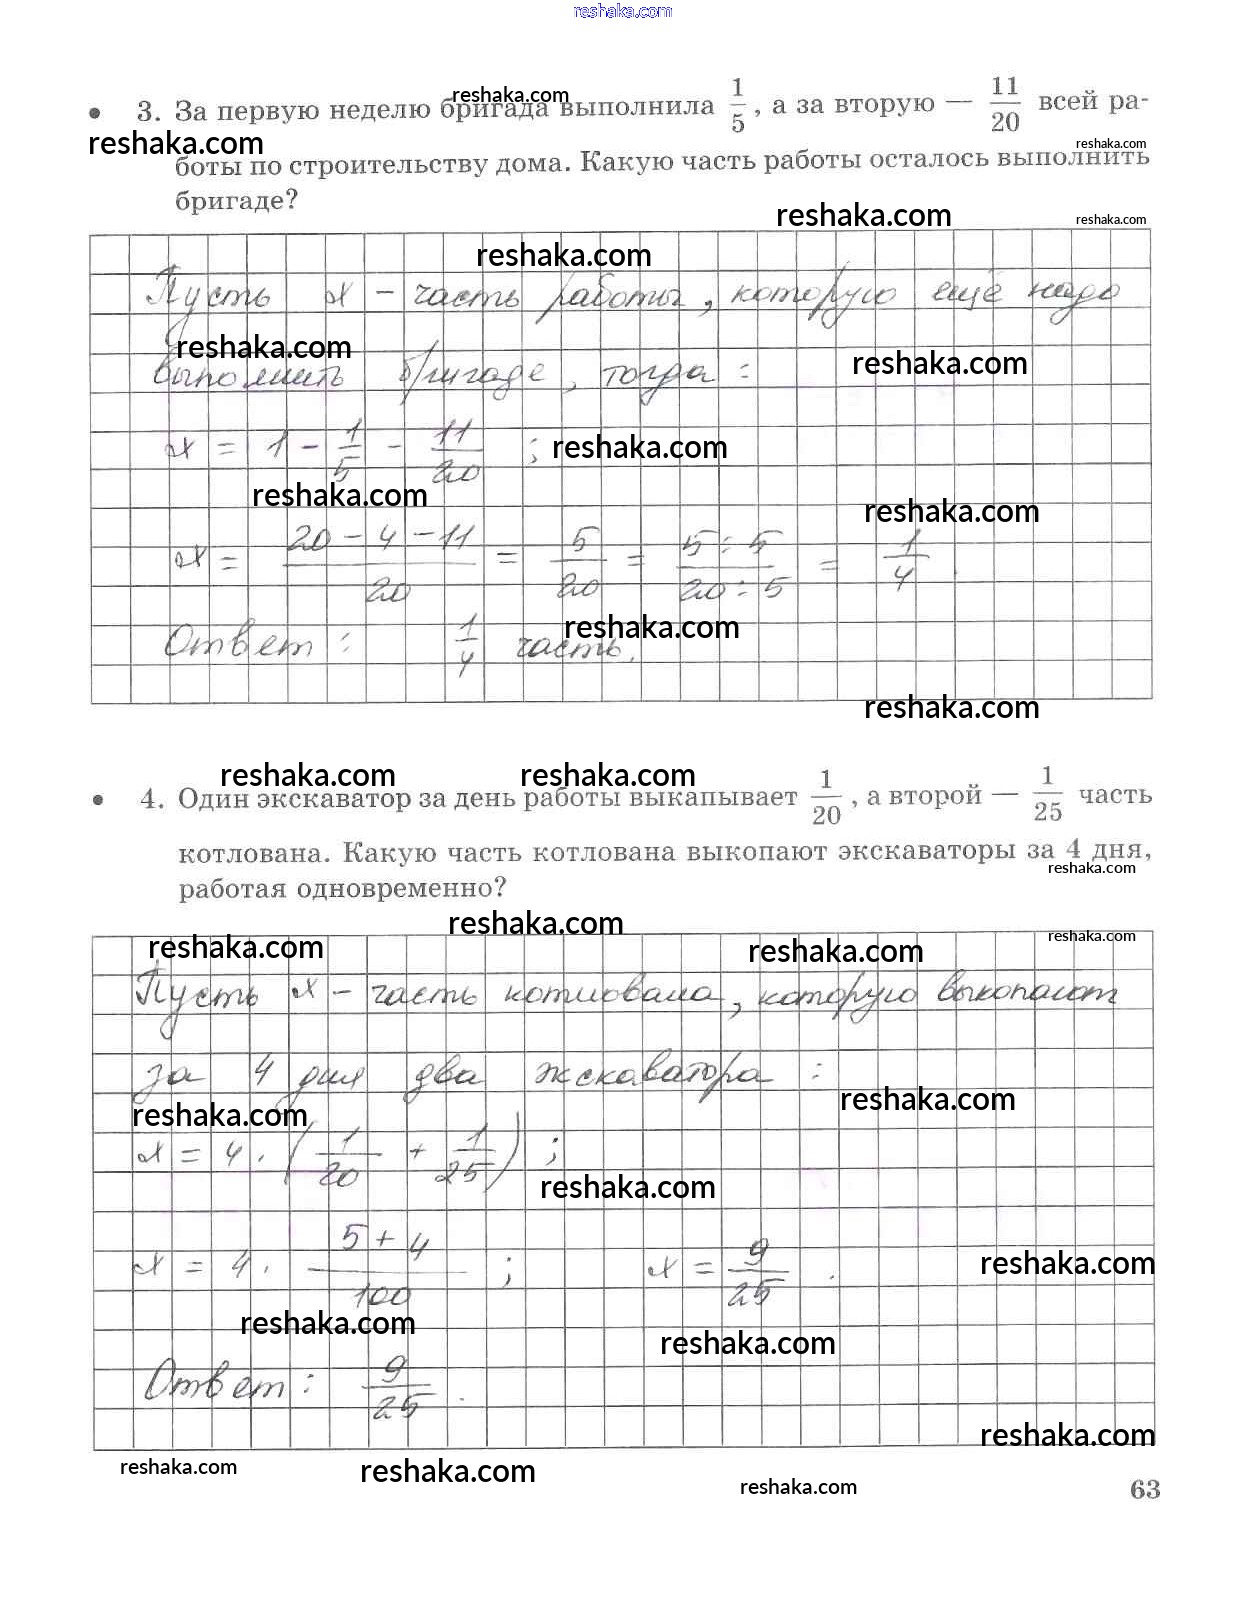 reshaka.com
3. За первую неделю бригада выполнила 1/5, а за вторую — 11/20 всей ра-
reshaka.com
reshaka.com
reshaka.com
боты по строительству дома. Какую часть работы осталось выполнить
бригаде?
reshaka.com
reshaka.com
reshaka.com
Пусть x - часть работы, которую ещё надо
reshaka.com
reshaka.com
выполнить бригаде, тогда:
x = 1 - 1/5 - 11/20 ;
reshaka.com
reshaka.com
reshaka.com
x = (20 - 4 - 11)/20 = 5/20 = (5 : 5)/(20 : 5) = 1/4 .
reshaka.com
Ответ: 1/4 часть.
reshaka.com
reshaka.com reshaka.com
4. Один экскаватор за день работы выкапывает 1/20, а второй — 1/25 часть
котлована. Какую часть котлована выкопают экскаваторы за 4 дня,
reshaka.com
работая одновременно?
reshaka.com
reshaka.com
reshaka.com
reshaka.com
Пусть x - часть котлована, которую выкопают
за 4 дня два экскаватора :
reshaka.com
reshaka.com
x = 4 · (1/20 + 1/25) ;
reshaka.com
x = 4 · (5 + 4)/100 ; x = 9/25 .
reshaka.com
reshaka.com
reshaka.com
Ответ: 9/25 .
reshaka.com
reshaka.com
reshaka.com
reshaka.com
63